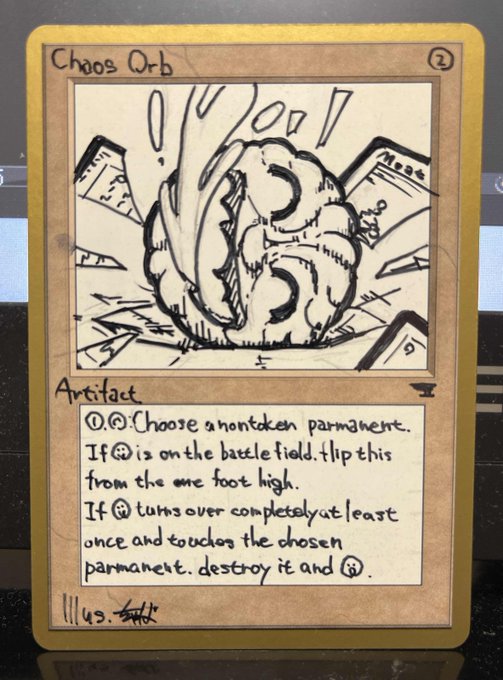 Chaos Orb
2
Meat
Artifact
1, : Choose a nontoken parmanent.
If is on the battlefield, flip this
from the one foot high.
If turns over completely at least
once and touches the chosen
parmanent. destroy it and .
Illus.